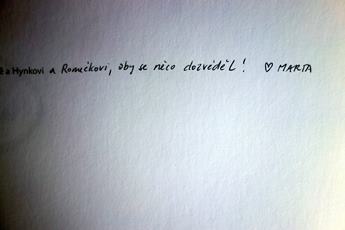 ě a Hynkovi a Romečkovi, aby se něco dozvěděl! ♡ MARTA